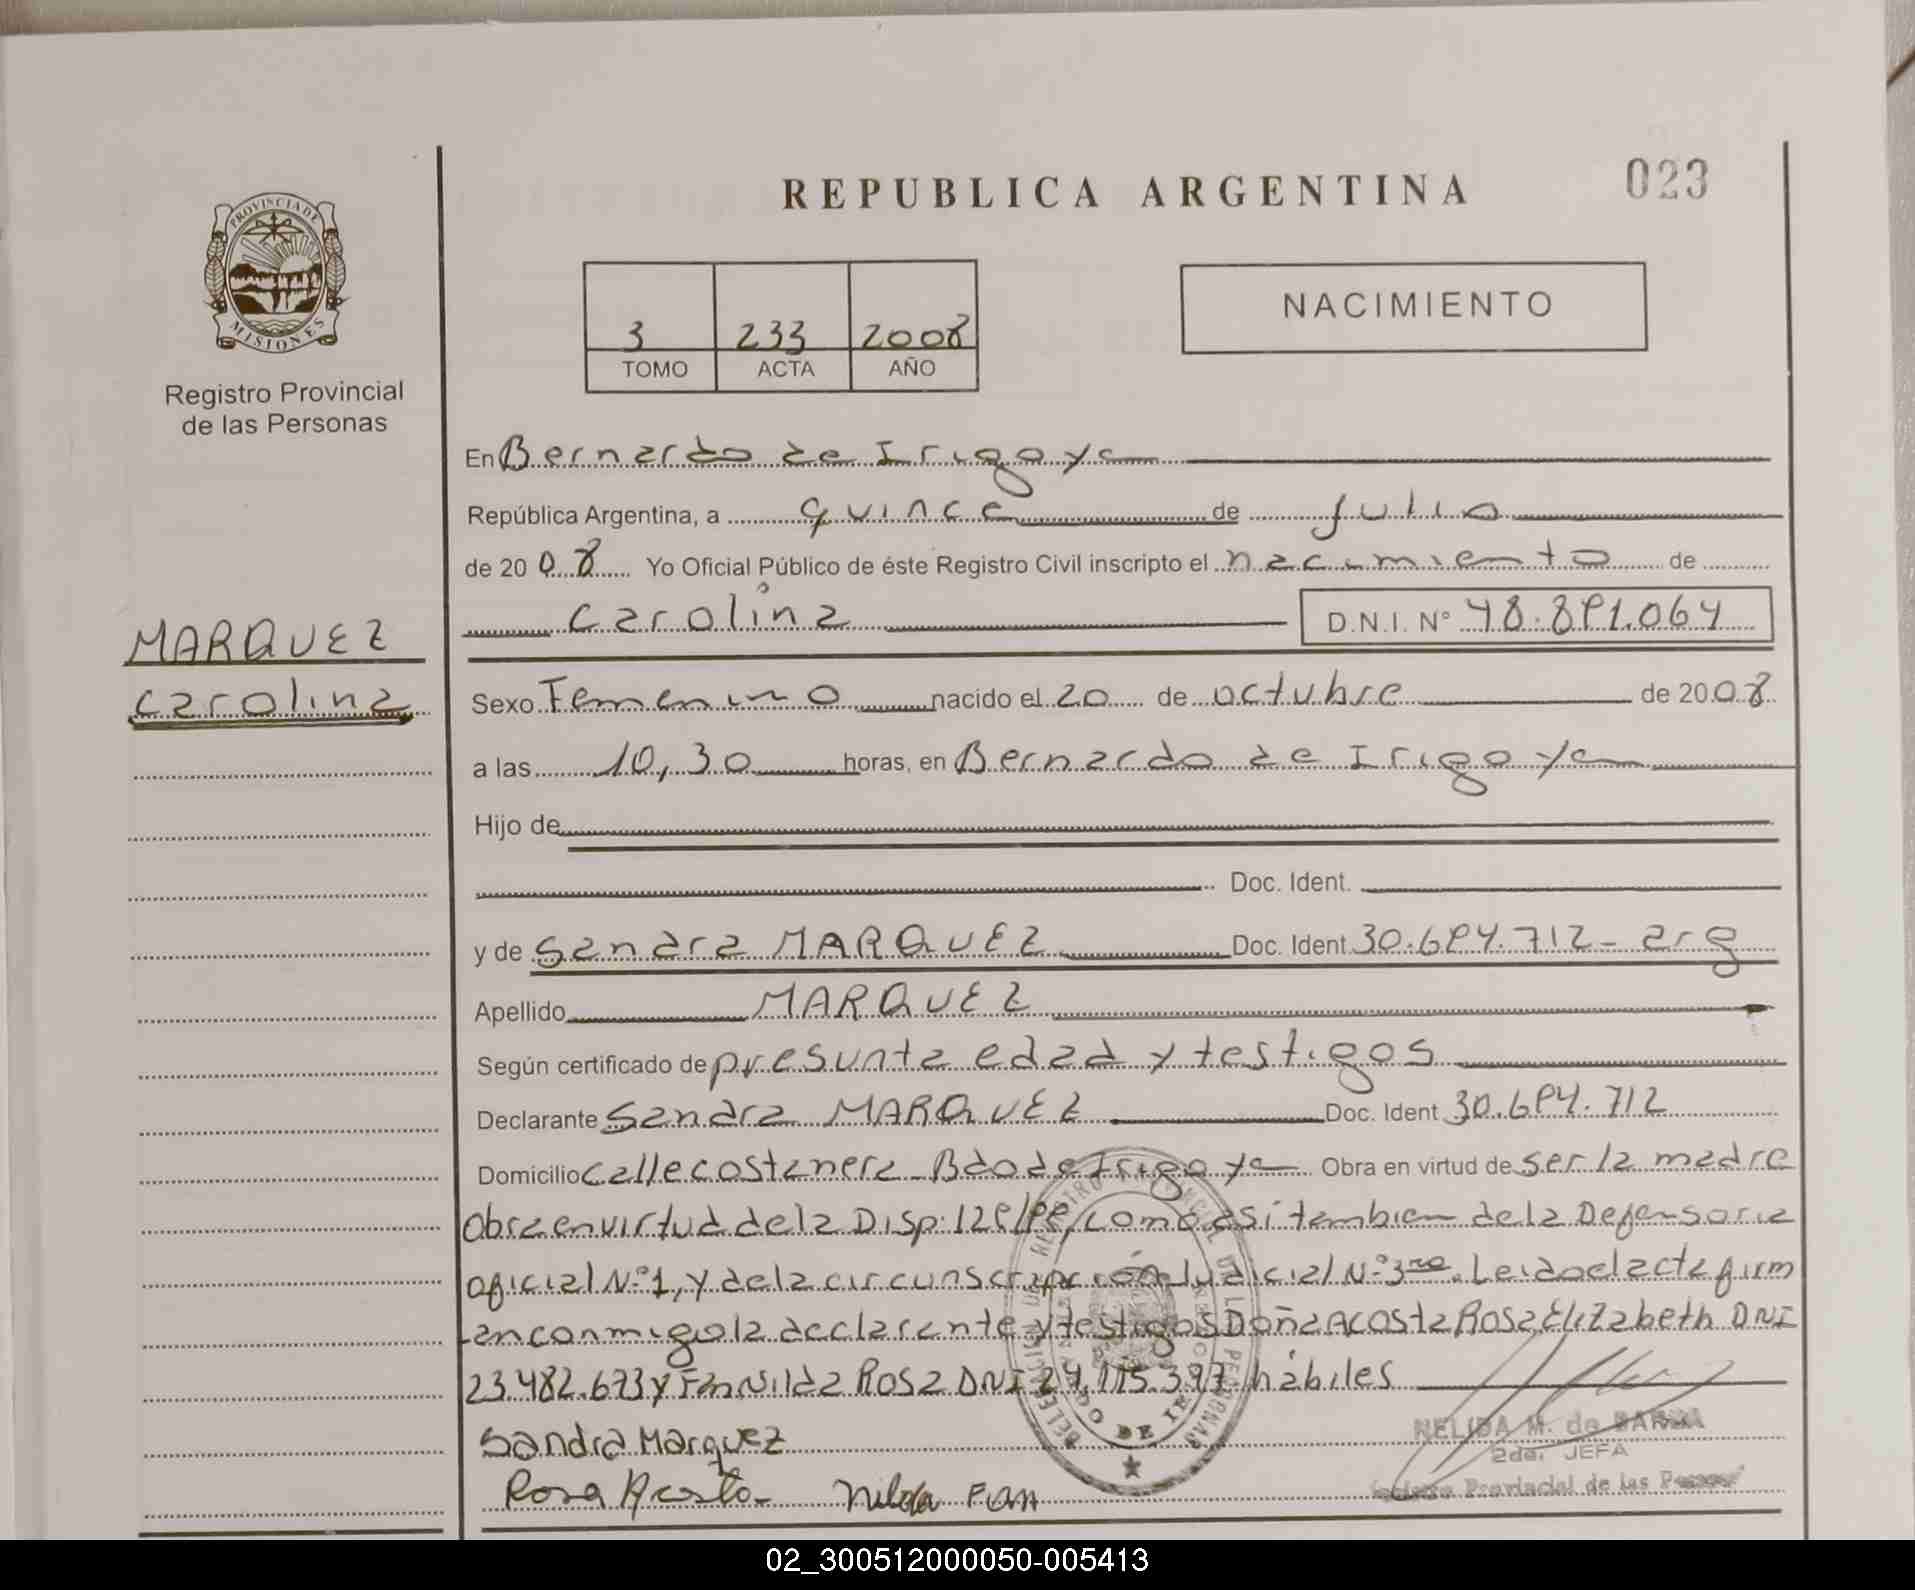 REPUBLICA ARGENTINA
023
PROVINCIA DE
MISIONES
Registro Provincial
de las Personas
3 233 2008
TOMO ACTA AÑO
NACIMIENTO
En Bernardo de Irigoyen
República Argentina, a quince de julio
de 2008 Yo Oficial Público de éste Registro Civil inscripto el nacimiento de
Carolina D.N.I. Nº 48.891.064
MARQUEZ
Carolina
Sexo Femenino nacido el 20 de octubre de 2008
a las 10,30 horas, en Bernardo de Irigoyen
Hijo de
Doc. Ident.
y de Sandra MARQUEZ Doc. Ident 30.694.712 - arg
Apellido MARQUEZ
Según certificado de presunta edad y testigos
Declarante Sandra MARQUEZ Doc. Ident 30.694.712
Domicilio calle costanera - Bdo de Irigoyen Obra en virtud de ser la madre
Obra en virtud de la Disp. como asi tambien de la Defensoria
oficial Nº 1, y de la circunscripción Judicial Nº 3ra. Leido el acta firm
an conmigo la declarante y testigos Doña Acosta Rosa Elizabeth DNI
23.482.673 y Fan Nilda Rosa DNI 24.115.397 hábiles
Sandra Marquez
Rosa Acosta Nilda Fan
NELIDA M. de
2da. JEFA
Provincial de las
02_300512000050-005413